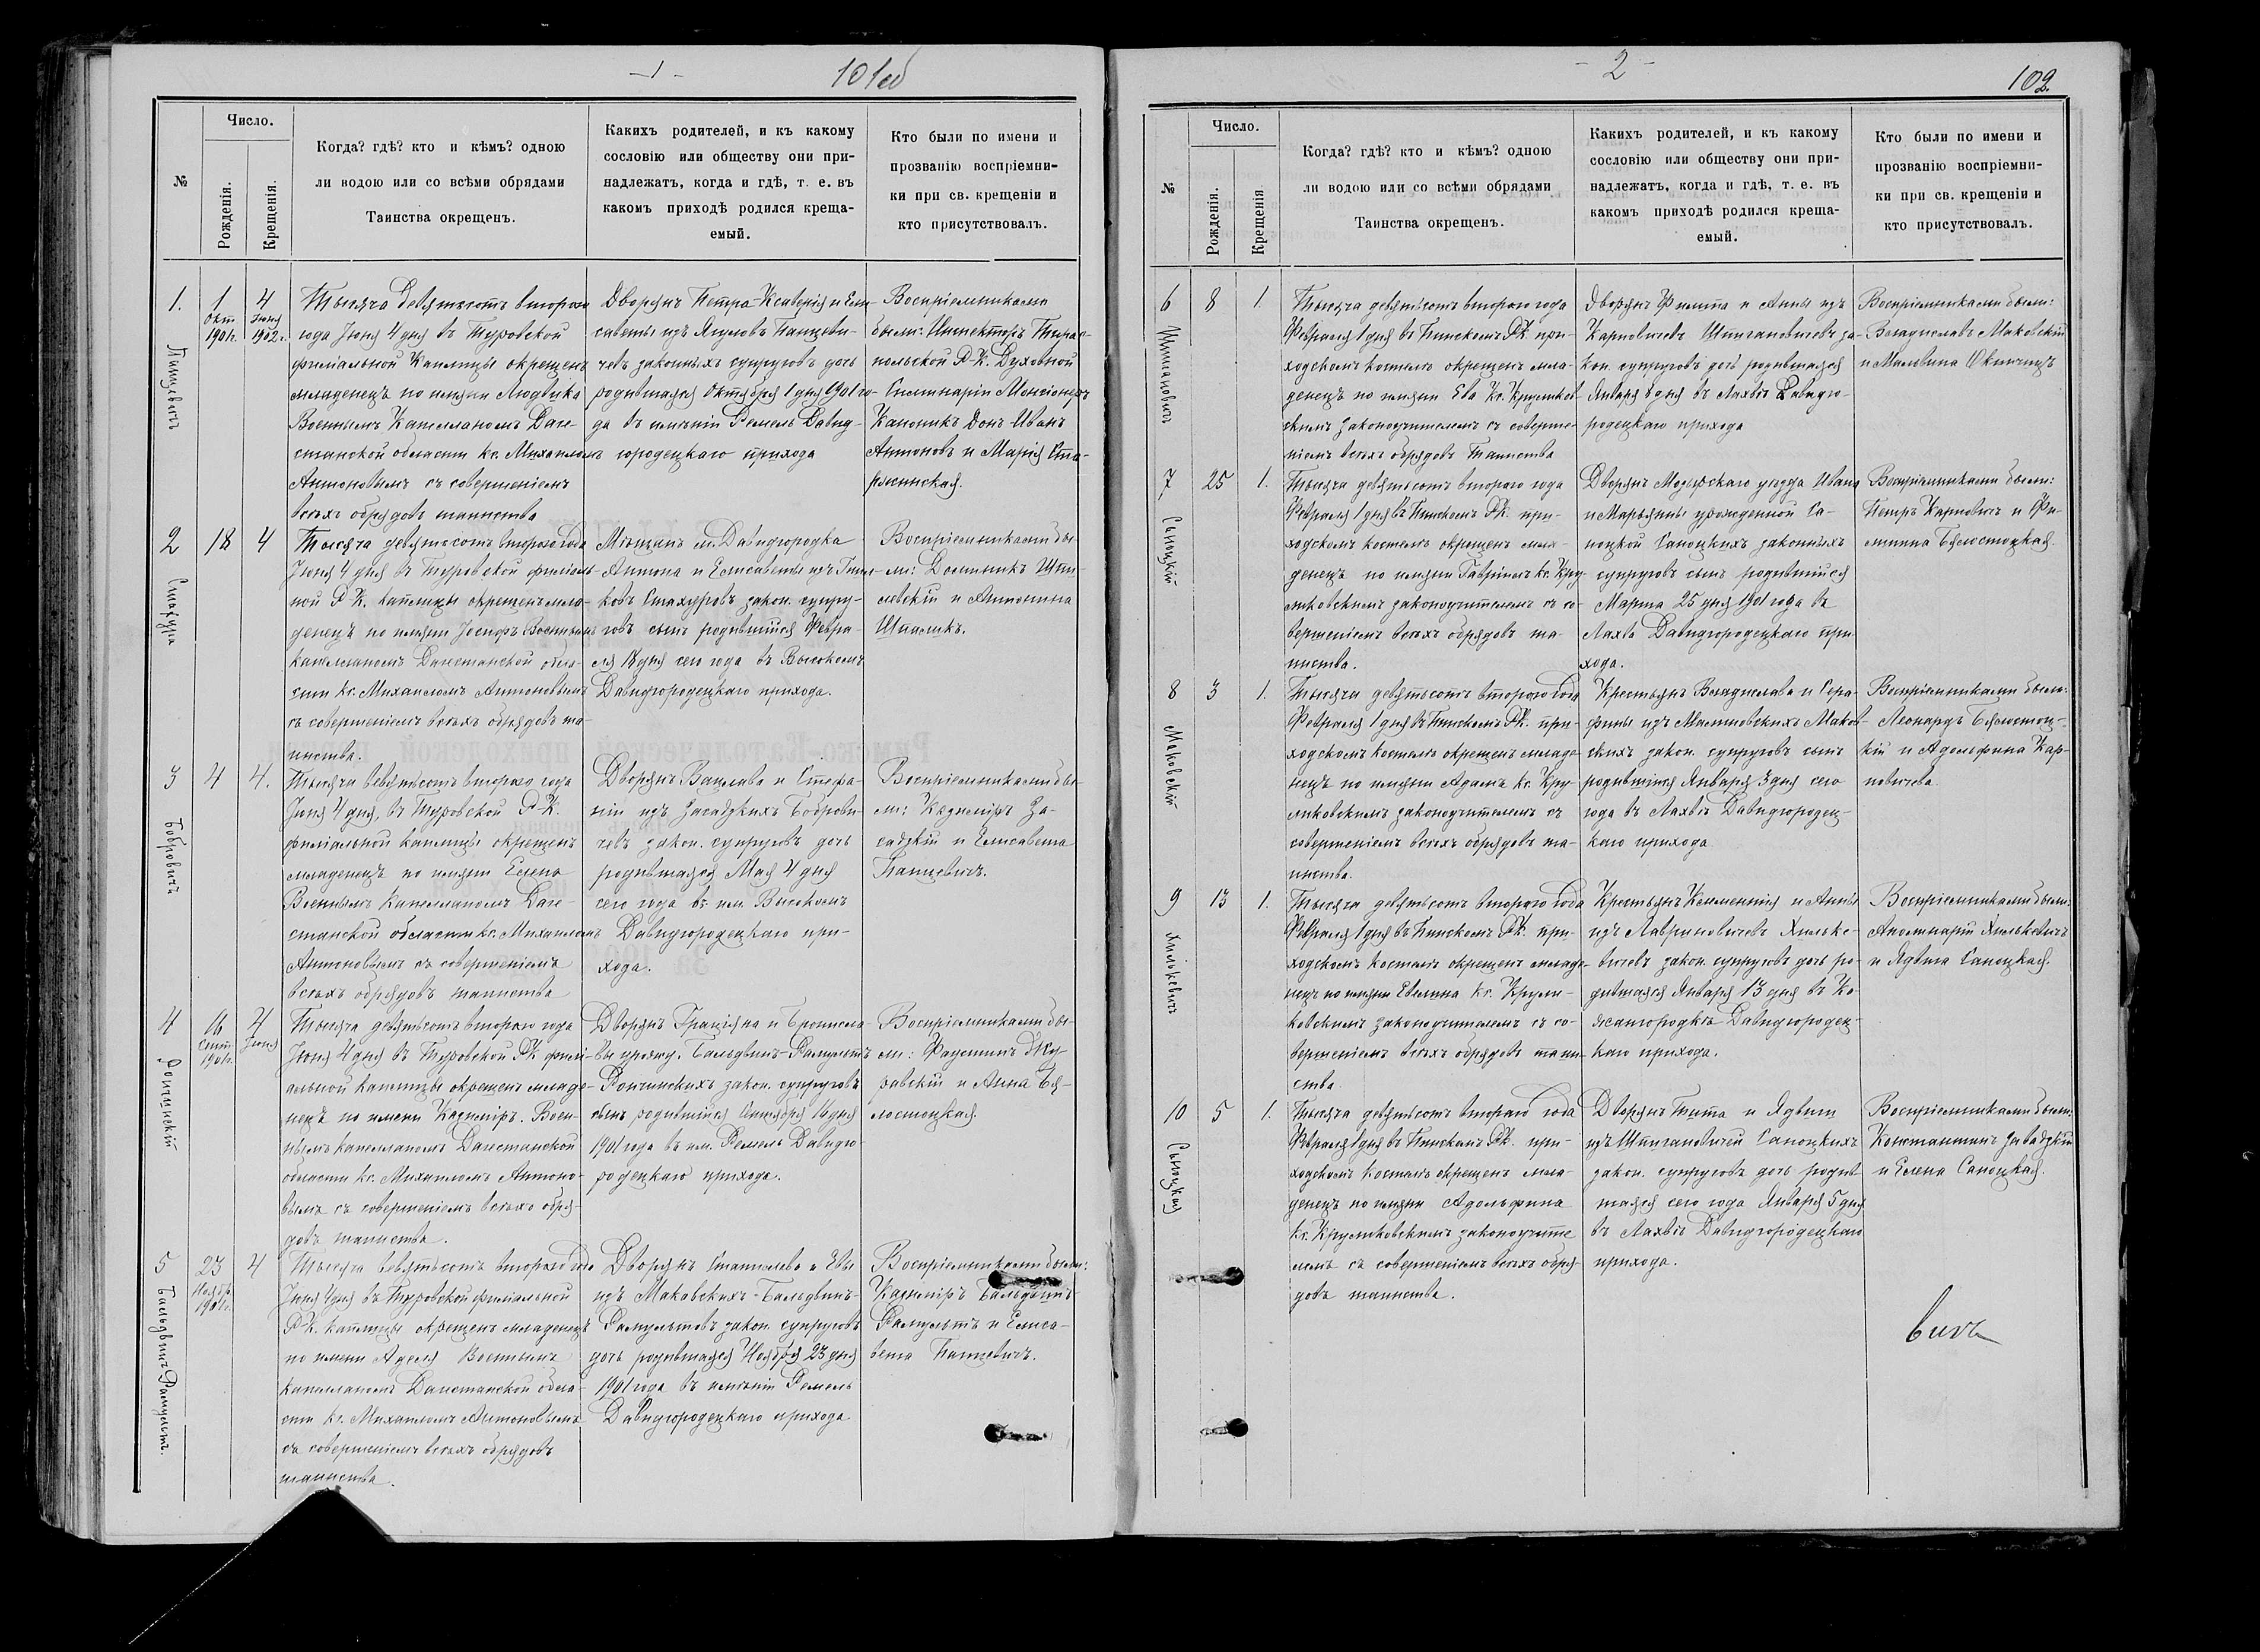 - 1 -
101 об
№
Число.
Рожденія.
Крещенія.
Когда? гдѣ? кто и кѣмъ? одною
ли водою или со всѣми обрядами
Таинства окрещенъ.
Какихъ родителей, и къ какому
сословію или обществу они при-
надлежатъ, когда и гдѣ, т. е. въ
какомъ приходѣ родился креща-
емый.
Кто были по имени и
прозванію воспріемни-
ки при св. крещеніи и
кто присутствовалъ.
1.
1
Окт
1901 г.
4
Іюня
1902 г.
Панцевичъ
Тысяча девятьсотъ второго
года Іюня 4 дня въ Туровской
филіальной Каплицы окрещенъ
младенецъ по имени Людвика
Военнымъ Капелланомъ Даге-
станской области кс. Михаиломъ
Антоновымъ съ совершеніемъ
всѣхъ обрядовъ таинства
Дворянъ Петра-Ксаверія и Ели-
саветы изъ Панцеви-
чевъ законныхъ супруговъ дочь
родившаяся Октября 1 дня 1901 го-
да въ имѣніи Ремель Давид-
городецкаго прихода
Воспріемниками
были: Инспекторъ Тирас-
польской Р.-К. Духовной
Семинаріи
Каноникъ Донъ Иванъ
Антоновъ и Марія
2
18
4
Стахура
Тысяча девятьсотъ второго года
Іюня 4 дня въ Туровской филіаль-
ной Р. К. каплицы окрещенъ мла-
денецъ по имени Іосифъ Военнымъ
капелланомъ Дагестанской обла-
сти кс. Михаиломъ Антоновымъ
съ совершеніемъ всѣхъ обрядовъ та-
инства.
Мѣщанъ м. Давидгородка
Антона и Елисаветы изъ
ковъ Стахуровъ закон. супру-
говъ сынъ родившійся Февра-
ля 18 дня сего года въ Высокомъ
Давидгородецкаго прихода.
Воспріемниками бы-
ли: Доминикъ
и Антонина
3
4
4.
Бобровичъ
Тысяча девятьсотъ второго года
Іюня 4 дня, въ Туровской Р. К.
филіальной каплицы окрещенъ
младенецъ по имени Елена
Военнымъ Капелланомъ Даге-
станской области кс. Михаиломъ
Антоновымъ съ совершеніемъ
всѣхъ обрядовъ таинства
Дворянъ Вацлава и Стефа-
ніи изъ Засадзкихъ Боброви-
чевъ закон. супруговъ дочь
родившаяся Мая 4 дня
сего года въ им. Высокомъ
Давидгородецкаго при-
хода.
Воспріемниками бы-
ли: Казиміръ За-
садзкій и Елисавета
Панцевичъ.
4
16
Сент.
1901 г.
4
Іюня
Рончинскій
Тысяча девятьсотъ второго года
Іюня 4 дня въ Туровской Р.К. филі-
альной каплицы окрещенъ младе-
нецъ по имени Казиміръ. Воен-
нымъ капелланомъ Дагестанской
области кс. Михаиломъ Антоно-
вымъ съ совершеніемъ всѣхъ обря-
довъ таинства.
Дворянъ Граціяна и Брониcла-
вы урожд. Бальдвинъ-Рамультъ
Рончинскихъ закон. супруговъ
сынъ родившійся Сентября 16 дня
1901 года въ им. Ремель Давидго-
родецкаго прихода.
Воспріемниками бы-
ли: Фаустинъ
и Анна Бя-
лостоцкая.
5
23
Ноябр.
1901 г.
4
Бальдвинъ-Рамультъ.
Тысяча девятьсотъ второго года
Іюня 4 дня въ Туровской филіальной
Р.К. каплицы окрещенъ младенецъ
по имени Аделя Военнымъ
капелланомъ Дагестанской обла-
сти кс. Михаиломъ Антоновымъ
съ совершеніемъ всѣхъ обрядовъ
таинства.
Дворянъ Станислава и Евы
изъ Маковскихъ-Бальдвинъ-
Рамультовъ закон. супруговъ
дочь родившаяся Ноября 23 дня
1901 года въ имѣніи Ремель
Давидгородецкаго прихода
Воспріемниками были:
Казиміръ Бальдвинъ-
Рамультъ и Елиса-
вета Панцевичъ.
- 2 -
102.
№
Число.
Рожденія.
Крещенія
Когда? гдѣ? кто и кѣмъ? одною
ли водою или со всѣми обрядами
Таинства окрещенъ.
Какихъ родителей, и къ какому
сословію или обществу они при-
надлежатъ, когда и гдѣ, т. е. въ
какомъ приходѣ родился креща-
емый.
Кто были по имени и
прозванію воспріемни-
ки при св. крещеніи и
кто присутствовалъ.
6
8
1.
Тысяча девятьсотъ второго года
Февраля 1 дня въ Пинскомъ Р.К. при-
ходскомъ костелѣ окрещенъ мла-
денецъ по имени Ева Кс. Круликов-
скимъ законоучителемъ съ соверше-
ніемъ всѣхъ обрядовъ Таинства
Дворянъ Филиппа и Анны изъ
Карповичевъ за-
кон. супруговъ дочь родившаяся
Января 8 дня въ Лахвѣ Давидго-
родецкаго прихода
Воспріемниками были:
Владиславъ Маковскій
и Мальвина Окинчицъ
7
25
1.
Сапоцкій
Тысяча девятьсотъ второго года
Февраля 1 дня въ Пинскомъ Р.К. при-
ходскомъ костелѣ окрещенъ мла-
денецъ по имени Гавріилъ кс. Кру-
ликовскимъ законоучителемъ съ со-
вершеніемъ всѣхъ обрядовъ та-
инства.
Дворянъ Мозырскаго уѣзда Ивана
и Марьянны урожденной Са-
поцкой Сапоцкихъ законныхъ
супруговъ сынъ родившійся
Марта 25 дня 1901 года въ
Лахвѣ Давидгородецкаго при-
хода.
Воспріемниками были:
Петръ Карповичъ и
Бялостоцкая.
8
3
1.
Маковскій
Тысяча девятьсотъ второго года
Февраля 1 дня въ Пинскомъ Р.К. при-
ходскомъ костелѣ окрещенъ младе-
нецъ по имени Адамъ кс. Кру-
ликовскимъ законоучителемъ съ
совершеніемъ всѣхъ обрядовъ та-
инства.
Крестьянъ Владислава и Сера-
фины изъ Малиновскихъ Маков-
скихъ закон. супруговъ сынъ
родившійся Января 3 дня сего
года въ Лахвѣ Давидгородец-
каго прихода
Воспріемниками были:
Леонардъ Бялостоц-
кій и Адольфина Кар-
повичева
9
13
1.
Хилькевичъ
Тысяча девятьсотъ второго года
Февраля 1 дня въ Пинскомъ Р.К. при-
ходскомъ костелѣ окрещенъ младе-
нецъ по имени Евелина кс. Крули-
ковскимъ законоучителемъ съ со-
вершеніемъ всѣхъ обрядовъ таин-
ства.
Крестьянъ Клементія и Анны
изъ Лавриновичевъ Хильке-
вичевъ закон. супруговъ дочь ро-
дившаяся Января 13 дня въ Ко-
жангородкѣ Давидгородец-
каго прихода.
Воспріемниками были:
Аполинарій Хилькевичъ
и Ядвига Сапоцкая.
10
5
1.
Сапоцкая
Тысяча девятьсотъ второго года
Февраля 1 дня въ Пинскомъ Р.К. при-
ходскомъ костелѣ окрещенъ мла-
денецъ по имени Адольфина
кс. Круликовскимъ законоучите-
лемъ съ совершеніемъ всѣхъ обря-
довъ таинства.
Дворянъ Тита и Ядвиги
изъ Сапоцкихъ
закон. супруговъ дочь родив-
шаяся сего года Января 5 дня
въ Лахвѣ Давидгородецкаго
прихода.
Воспріемниками были:
Константинъ Завадзкій
и Елена Сапоцкая.